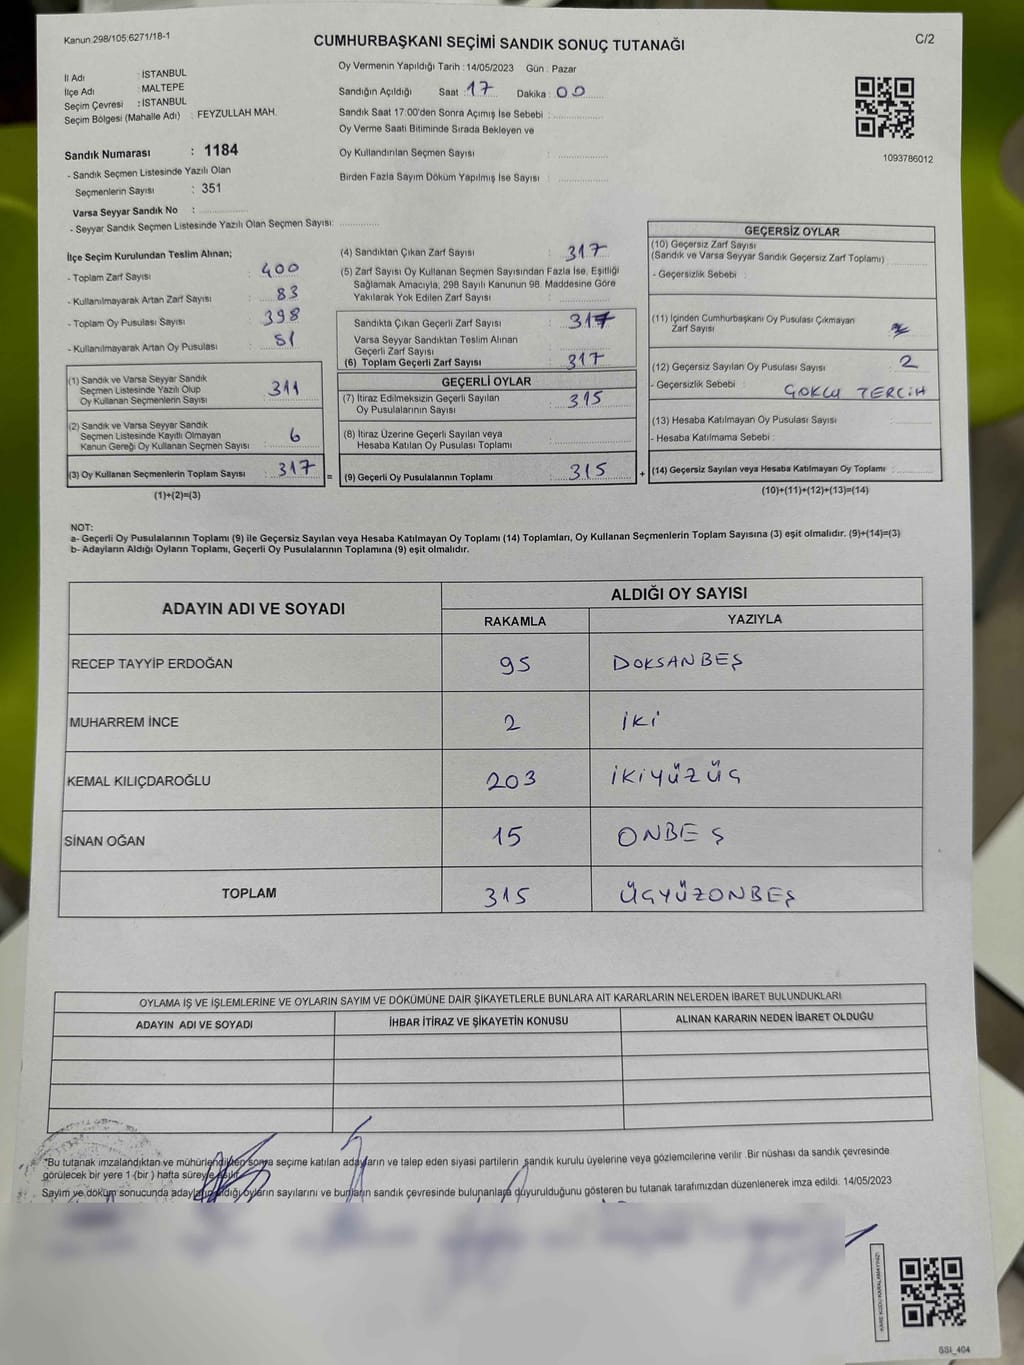 Kanun 298/105:6271/18-1
C/2
CUMHURBAŞKANI SEÇİMİ SANDIK SONUÇ TUTANAĞI
İl Adı : İSTANBUL
İlçe Adı : MALTEPE
Seçim Çevresi : İSTANBUL
Seçim Bölgesi (Mahalle Adı) : FEYZULLAH MAH.
Oy Vermenin Yapıldığı Tarih : 14/05/2023 Gün : Pazar
Sandığın Açıldığı Saat : 17 Dakika : 00
Sandık Saat 17:00'den Sonra Açımış İse Sebebi :
Oy Verme Saati Bitiminde Sırada Bekleyen ve
Oy Kullandırılan Seçmen Sayısı :
Birden Fazla Sayım Döküm Yapılmış İse Sayısı :
1093786012
Sandık Numarası : 1184
- Sandık Seçmen Listesinde Yazılı Olan
Seçmenlerin Sayısı : 351
Varsa Seyyar Sandık No :
- Seyyar Sandık Seçmen Listesinde Yazılı Olan Seçmen Sayısı:
İlçe Seçim Kurulundan Teslim Alınan;
- Toplam Zarf Sayısı : 400
- Kullanılmayarak Artan Zarf Sayısı : 83
- Toplam Oy Pusulası Sayısı : 398
- Kullanılmayarak Artan Oy Pusulası : 81
(1) Sandık ve Varsa Seyyar Sandık
Seçmen Listesinde Yazılı Olup
Oy Kullanan Seçmenlerin Sayısı : 311
(2) Sandık ve Varsa Seyyar Sandık
Seçmen Listesinde Kayıtlı Olmayan
Kanun Gereği Oy Kullanan Seçmen Sayısı : 6
(3) Oy Kullanan Seçmenlerin Toplam Sayısı : 317
(1)+(2)=(3)
=
(4) Sandıktan Çıkan Zarf Sayısı : 317
(5) Zarf Sayısı Oy Kullanan Seçmen Sayısından Fazla İse, Eşitliği
Sağlamak Amacıyla, 298 Sayılı Kanunun 98. Maddesine Göre
Yakılarak Yok Edilen Zarf Sayısı :
Sandıkta Çıkan Geçerli Zarf Sayısı : 317
Varsa Seyyar Sandıktan Teslim Alınan
Geçerli Zarf Sayısı :
(6) Toplam Geçerli Zarf Sayısı : 317
GEÇERLİ OYLAR
(7) İtiraz Edilmeksizin Geçerli Sayılan
Oy Pusulalarının Sayısı : 315
(8) İtiraz Üzerine Geçerli Sayılan veya
Hesaba Katılan Oy Pusulası Toplamı :
(9) Geçerli Oy Pusulalarının Toplamı : 315
+
GEÇERSİZ OYLAR
(10) Geçersiz Zarf Sayısı
(Sandık ve Varsa Seyyar Sandık Geçersiz Zarf Toplamı)
- Geçersizlik Sebebi :
(11) İçinden Cumhurbaşkanı Oy Pusulası Çıkmayan
Zarf Sayısı
(12) Geçersiz Sayılan Oy Pusulası Sayısı : 2
- Geçersizlik Sebebi : ÇOKLU TERCİH
(13) Hesaba Katılmayan Oy Pusulası Sayısı :
- Hesaba Katılmama Sebebi :
(14) Geçersiz Sayılan veya Hesaba Katılmayan Oy Toplamı :
(10)+(11)+(12)+(13)=(14)
NOT:
a- Geçerli Oy Pusulalarının Toplamı (9) ile Geçersiz Sayılan veya Hesaba Katılmayan Oy Toplamı (14) Toplamları, Oy Kullanan Seçmenlerin Toplam Sayısına (3) eşit olmalıdır. (9)+(14)=(3)
b- Adayların Aldığı Oyların Toplamı, Geçerli Oy Pusulalarının Toplamına (9) eşit olmalıdır.
ADAYIN ADI VE SOYADI
ALDIĞI OY SAYISI
RAKAMLA YAZIYLA
RECEP TAYYİP ERDOĞAN 95 DOKSANBEŞ
MUHARREM İNCE 2 İKİ
KEMAL KILIÇDAROĞLU 203 İKİYÜZÜÇ
SİNAN OĞAN 15 ONBEŞ
TOPLAM 315 ÜÇYÜZONBEŞ
OYLAMA İŞ VE İŞLEMLERİNE VE OYLARIN SAYIM VE DÖKÜMÜNE DAİR ŞİKAYETLERLE BUNLARA AİT KARARLARIN NELERDEN İBARET BULUNDUKLARI
ADAYIN ADI VE SOYADI İHBAR İTİRAZ VE ŞİKAYETİN KONUSU ALINAN KARARIN NEDEN İBARET OLDUĞU
"Bu tutanak imzalandıktan ve mühürlendikten sonra seçime katılan adayların ve talep eden siyasi partilerin sandık kurulu üyelerine veya gözlemcilerine verilir. Bir nüshası da sandık çevresinde
görülecek bir yere 1 (bir) hafta süreyle asılır.
Sayım ve döküm sonucunda adayların aldığı oyların sayılarını ve bunların sandık çevresinde bulunanlara duyurulduğunu gösteren bu tutanak tarafımızdan düzenlenerek imza edildi. 14/05/2023
SSI_404